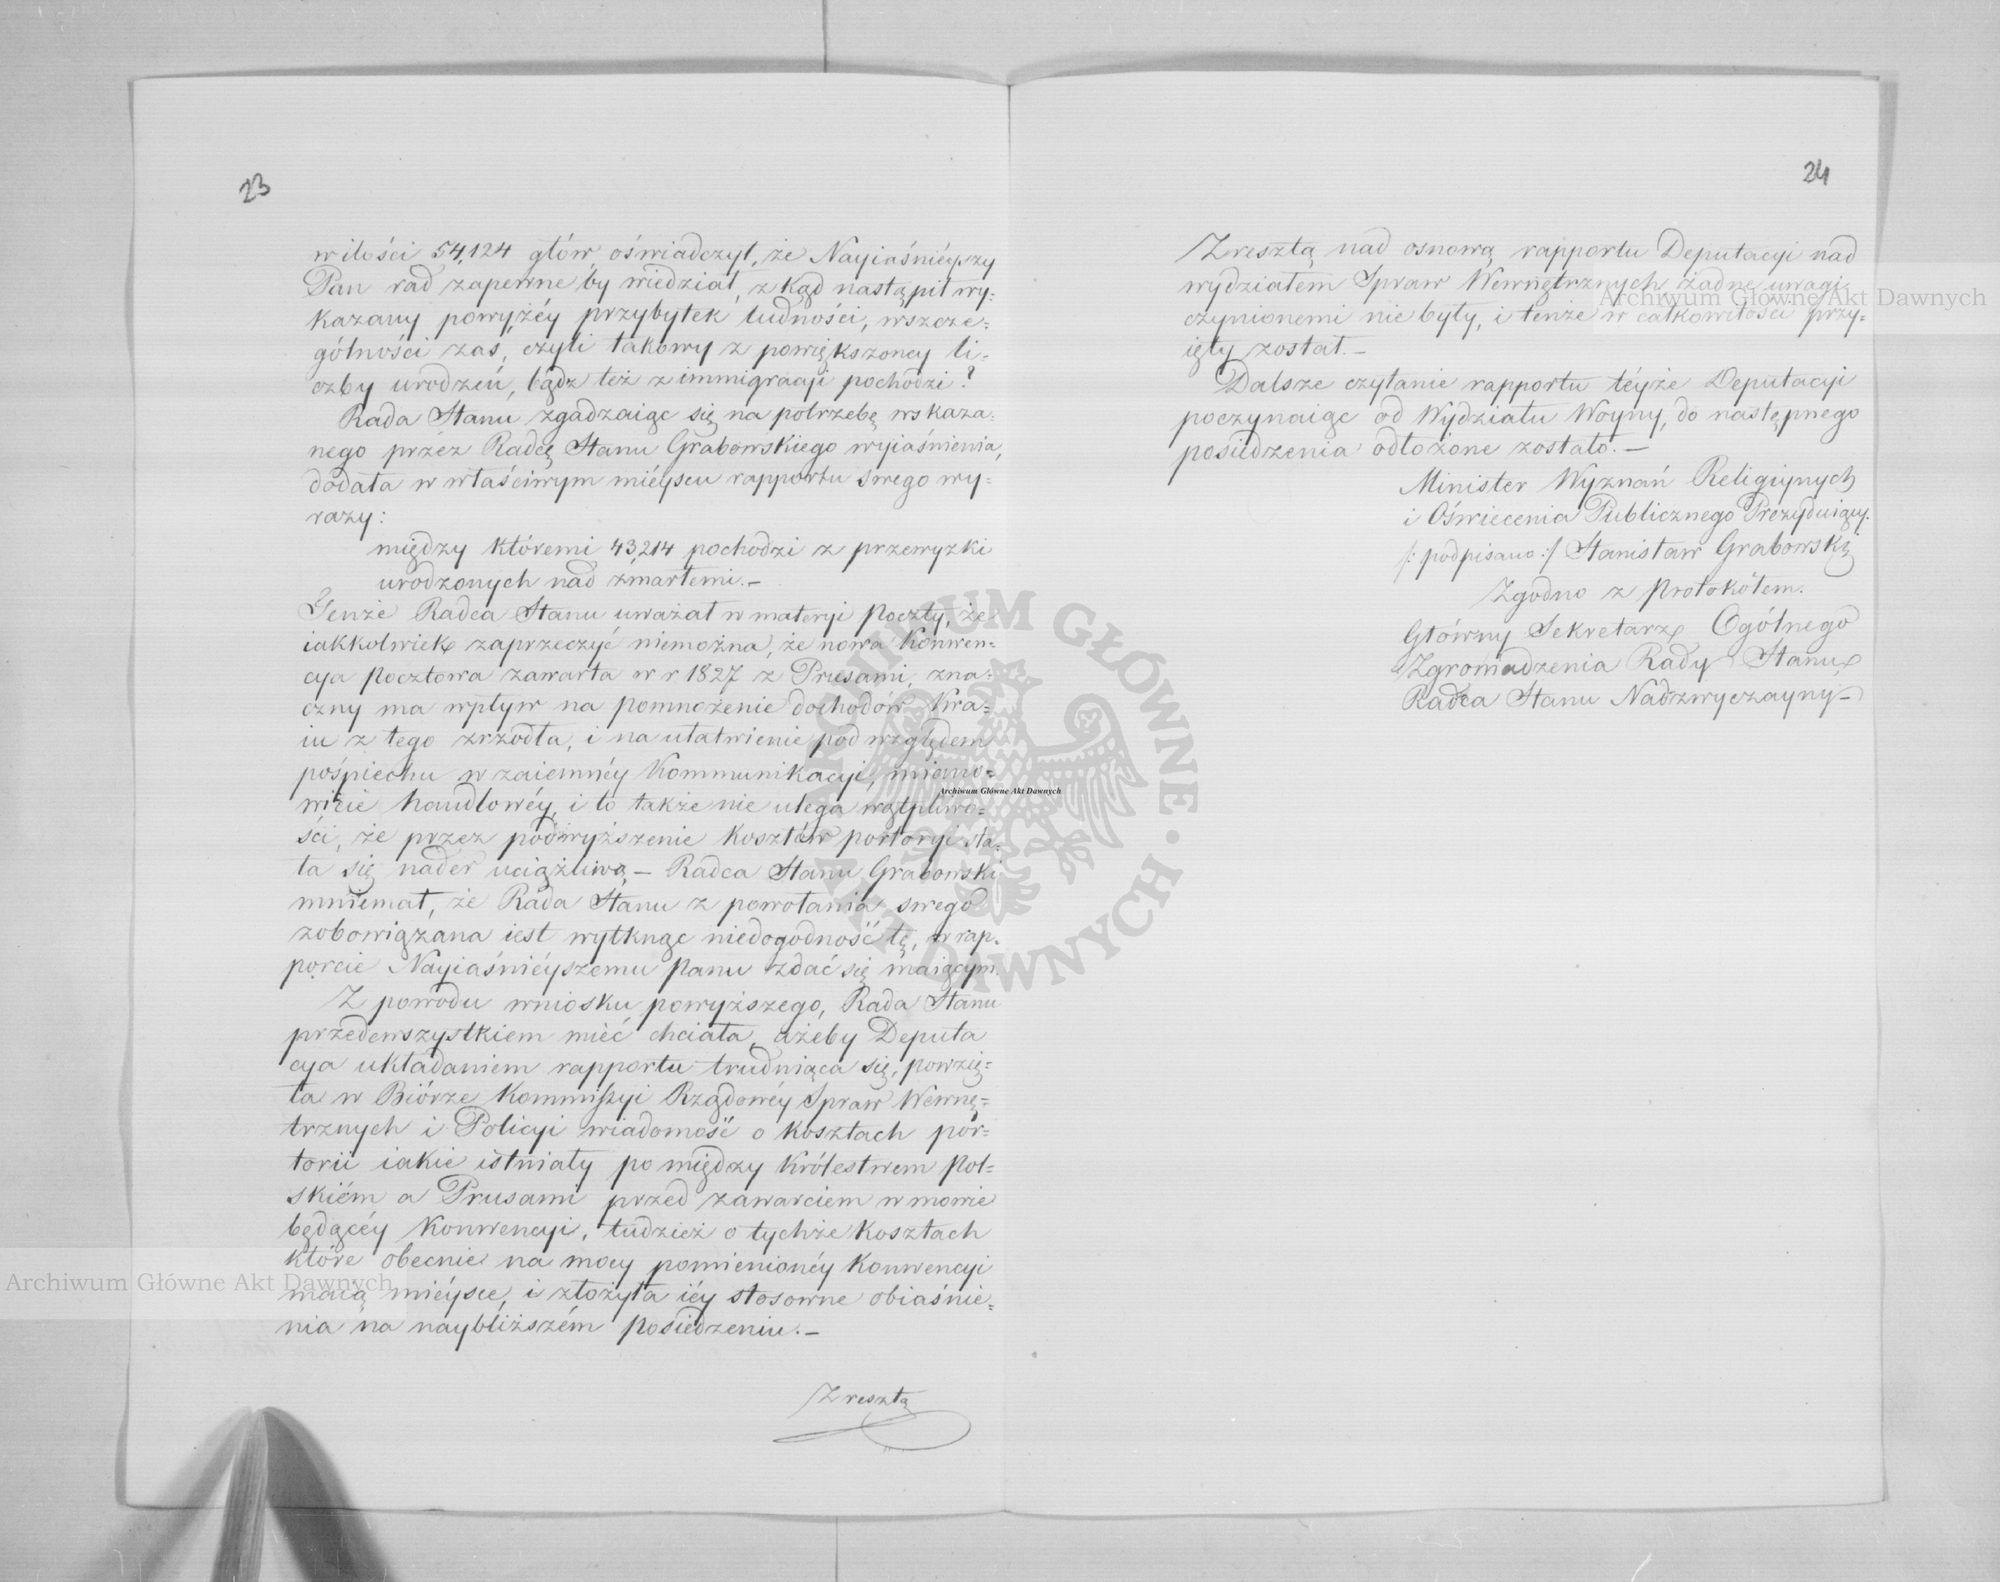 23
w ilości 54,124 głów oświadczył, że Nayiaśnieyszy
Pan rad zapewne by wiedział, z kąd nastąpił wy-
kazany powyżéy przybytek ludności, wszcze=
gólności zaś, czyli takowy z powiększoney li=
czby urodzeń, bądz też z immigracyi pochodzi?
Rada Stanu zgadzaiąc się na potrzebę wskaza=
nego przez Radcę Stanu Grabowskiego wyiaśnienia,
dodała w właściwym mieyscu rapportu swego wy=
razy:
między któremi 43,214 pochodzi z przewyzki
urodzonych nad zmarłemi.—
Tenże Radca Stanu uważał w materyi Poczty, że
iakkolwiek zaprzeczyć niemożna, że nowa Konwen=
cya Pocztowa zawarta w r 1827 z Prusami, zna=
czny ma wpływ na pomnożenie dochodów Kra=
iu z tego zrzodła, i na ułatwienie pod względem
pośpiechu w zaiemnéy Kommunikacyi, miano=
wicie handlowéy, i to także nie ulega wątpliwo=
ści, że przez podwyższenie Kosztów portoryi sta=
ła się nader uciążliwą.— Radca Stanu Grabowski
mniemał, że Rada Stanu z powołania swego
zobowiązana iest wytknąc niedogodność tę, w rap=
porcie Nayiaśniéyszemu Panu zdać się maiącym.
Z powodu wniosku powyższego, Rada Stanu
przedewszystkiem mieć chciała, ażeby Deputa
cya układaniem rapportu trudniąca się, powzię=
ła w Biórze Kommissyi Rządowéy Spraw Wewnę=
trznych i Policyi wiadomość o kosztach por=
torii iakie istniały pomiędzy Królestwem Pol=
skiém a Prusami przed zawarciem w mowie
będącéy Konwencyi, tudzież o tychże kosztach
które obecnie na mocy pomienionéy Konwencyi
maią mieysce, i złożyła iéy stosowne obiaśnie=
nia na naybliższém posiedzeniu.—
Zresztą
24
Zresztą nad osnową rapportu Deputacyi nad
wydziałem Spraw Wewnętrznych żadne uwagi
czynionemi nie były, i tenże w całkowitości przy=
ięty został.—
Dalsze czytanie rapportu téyże Deputacyi
poczynaiąc od Wydziału Woyny, do następnego
posiedzenia odłożone zostało.—
Minister Wyznań Religiynych
i Oświecenia Publicznego Prezyduiący.
/: podpisano :/ Stanisław Grabowski
Zgodno z Protokołem.
Główny Sekretarz Ogólnego
Zgromadzenia Rady Stanu
Radca Stanu Nadzwyczayny—
Archiwum Główne Akt Dawnych
Archiwum Główne Akt Dawnych
Archiwum Główne Akt Dawnych
ARCHIWUM GŁÓWNE AKT DAWNYCH